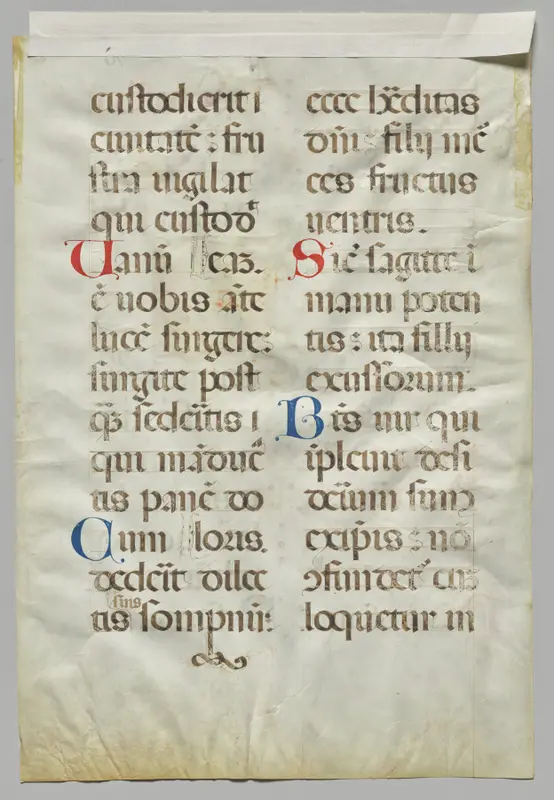 custodierit i
ciuitatē : fru
stra uigilat
qui custod
Uanū eaz.
ē uobis āte
lucē surgere:
surgite post
qz sedeitis i
qui māduc
tis panē do
Cum loris.
dedeīt dilec
suis
tis sompnū:
ecce hēditas
dn̄i : filij mē
ces fructus
uentris.
Sic̄ sagitte ī
manu poten
tis : ita filly
excussorum.
B tš uir qui
īpleuit desi
deium suuz
ex ip̄is : nō
ↄfundet eaz
loquetur in